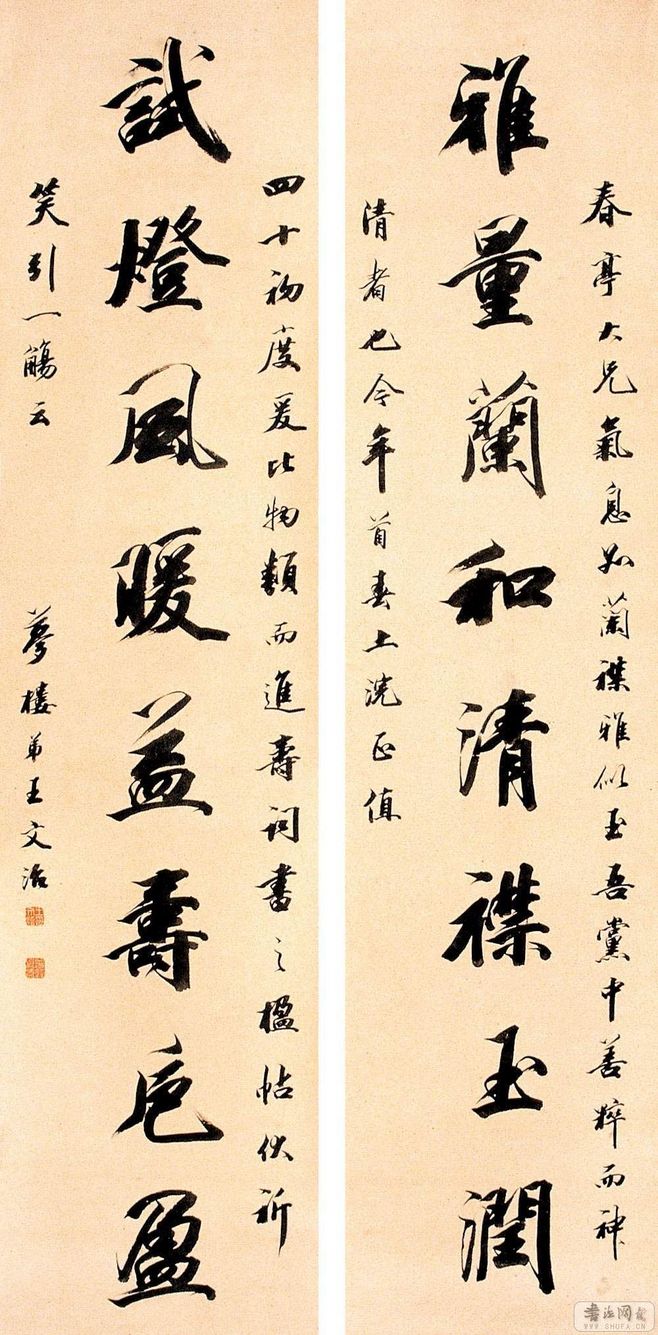 春亭大兄氣息如蘭襟雅似玉吾黨中善粹而神
雅量蘭和清襟玉潤
清者也今年首春上浣正值
四十初度爰比物類而進壽詞書之楹帖伏祈
試燈風暖益壽卮盈
笑引一觴云 夢樓弟王文治
WWW.SHUFA.CN